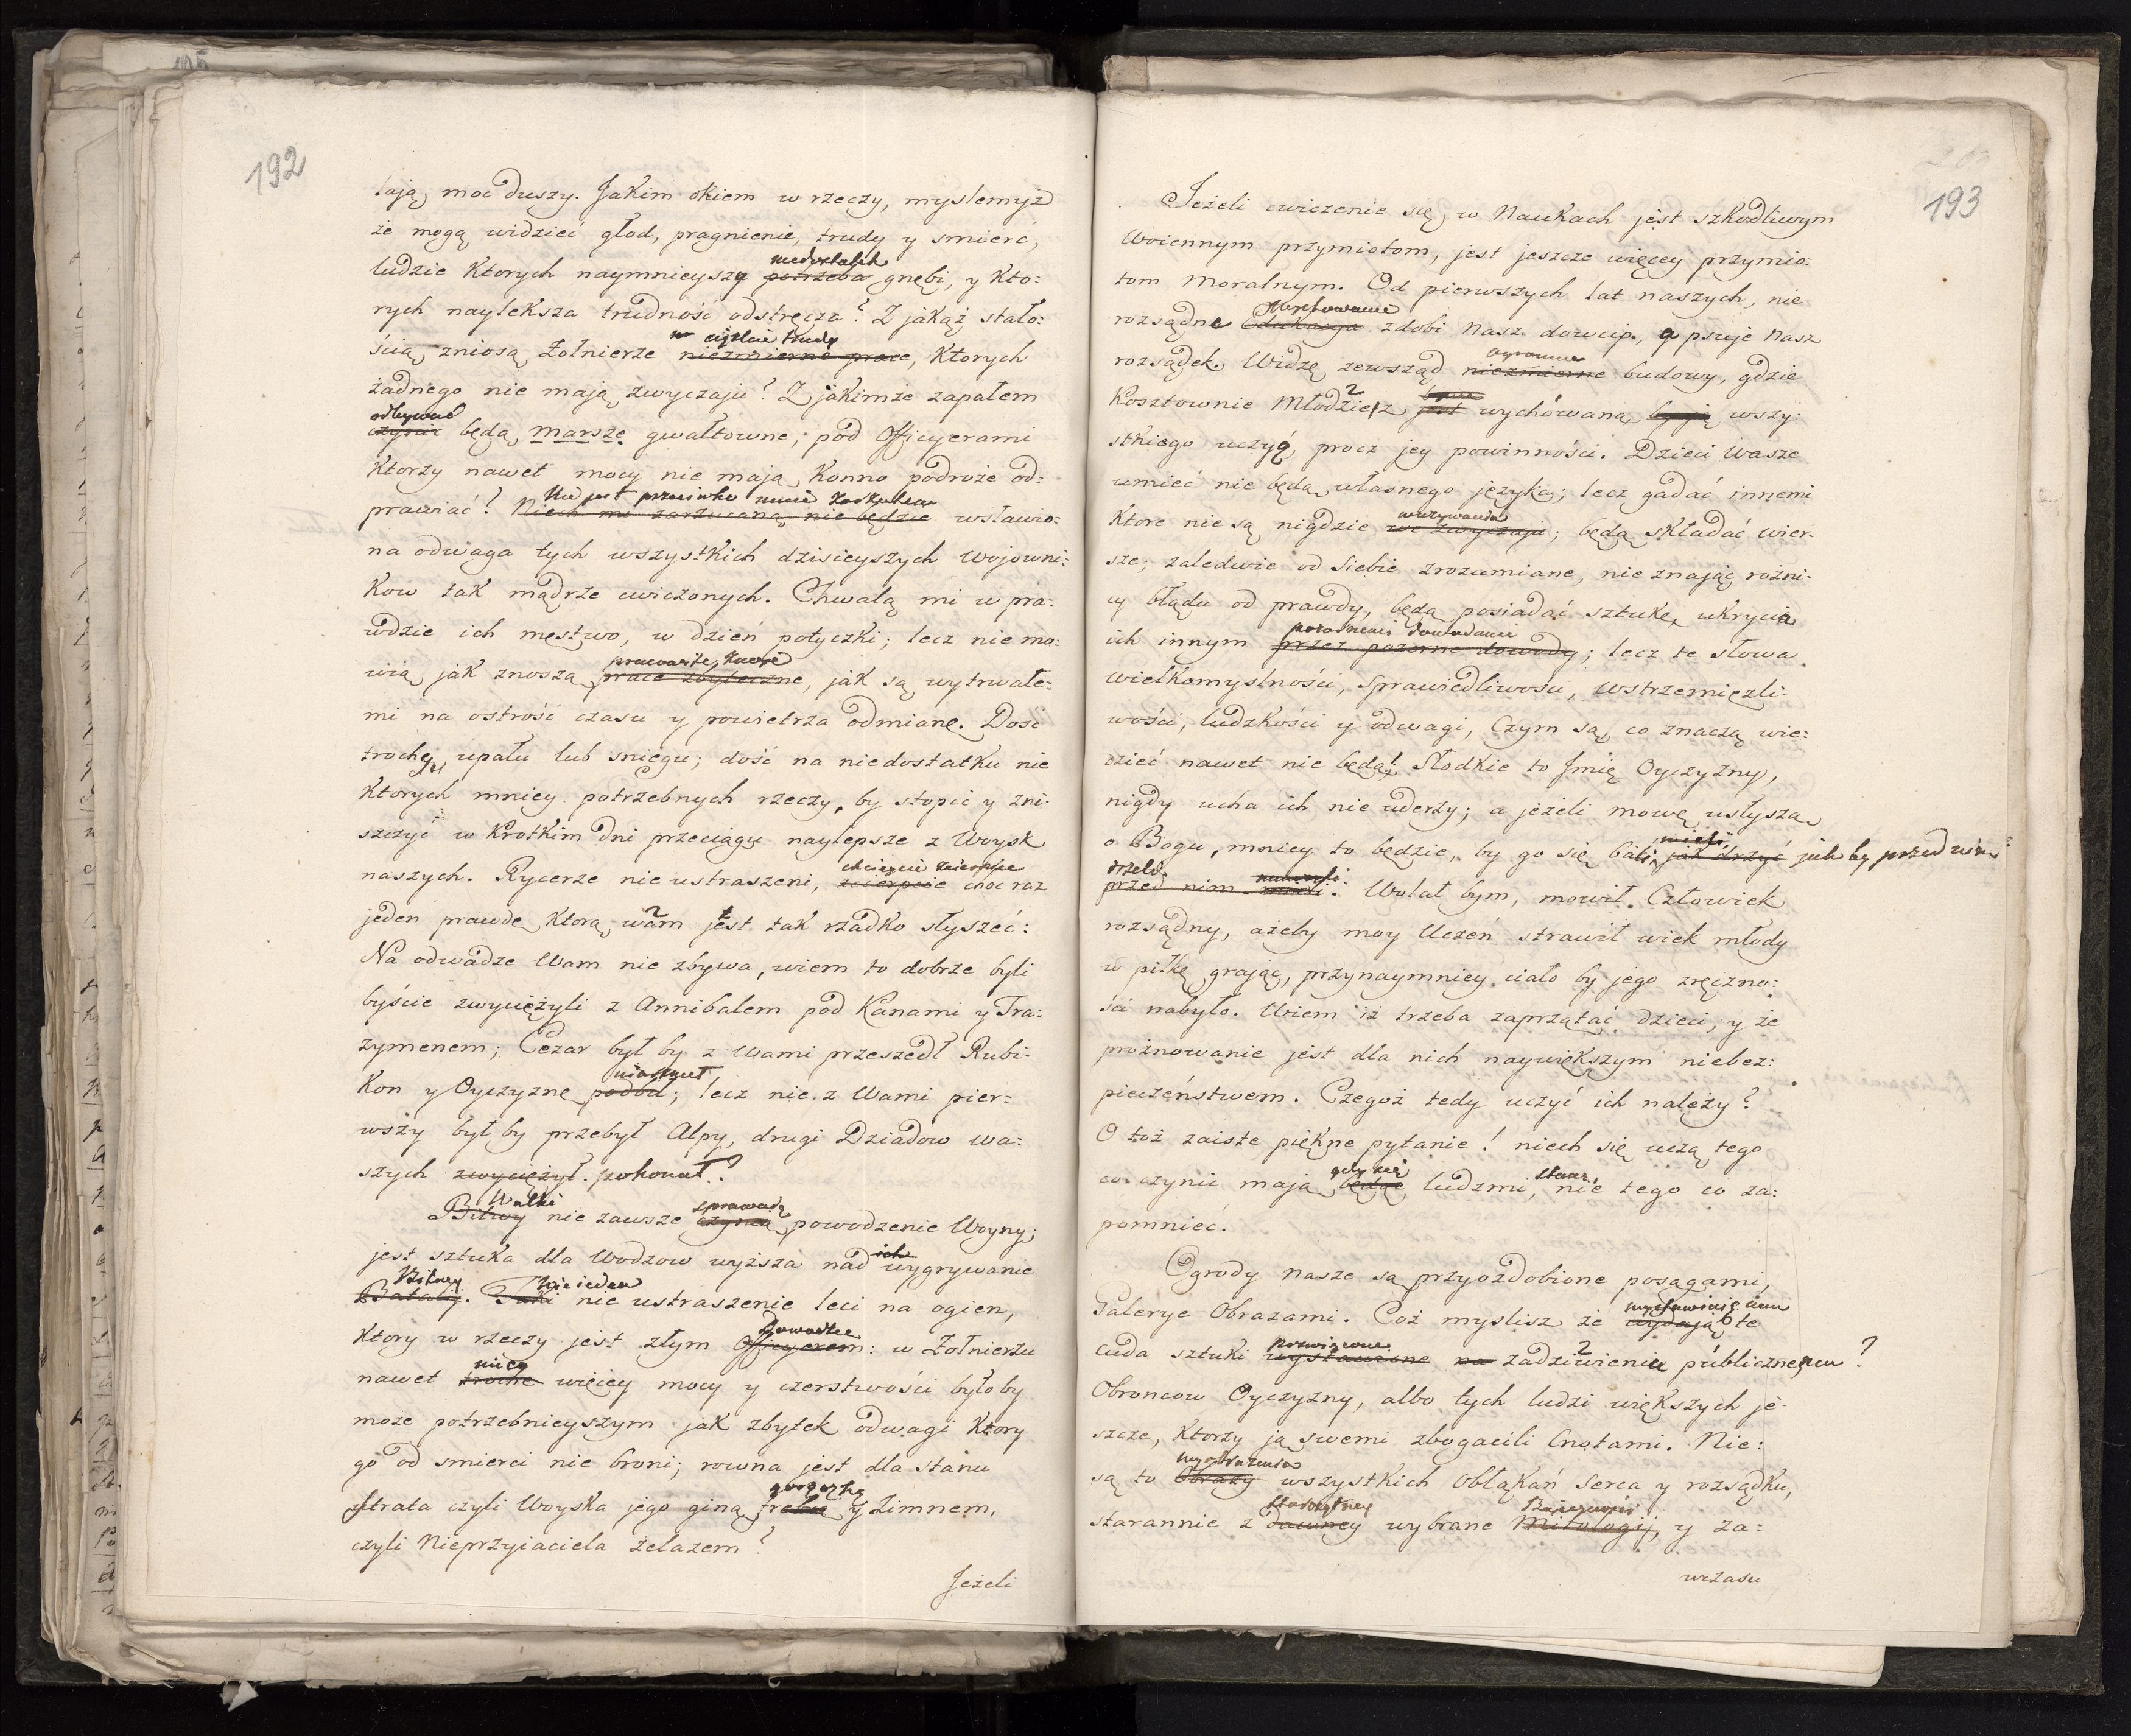 192
tają moc duszy. Jakim okiem w rzeczy, myslemyż
że mogą widzieć głod, pragnienie, trudy y smierć,
niedostatek
ludzie Ktorych naymnieyszy potrzeba gnębi, y Kto:
rych nayleksza trudność odstręcza? Z jakąż stało:
ciężkie trudy
ścią zniosą Żołnierze niezmierne prace, Ktorych
żadnego nie mają zwyczaju? Z jakimże zapałem
odbywać
czynić będą marsze gwałtowne; pod Officyerami
Ktorzy nawet mocy nie mają Konno podroże od:
Nie jest przeciwko mnie
prawiać? Niech mi zarzucaną nie będzie wsławio:
na odwaga tych wszystkich dzisieyszych Wojowni:
Kow tak mądrze cwiczonych. Chwalą mi w pra:
wdzie ich męstwo, w dzień potyczki; lecz nie mo:
wią jak znoszą prace zbyteczne, jak są wytrwałe:
mi na ostrość czasu y powietrza odmianę. Dość
trochę upału lub sniegu; dość na niedostatku nie
Ktorych mniey potrzebnych rzeczy, by stopić y zni:
szczyć w Krotkim dni przeciągu naylepsze z Woysk
chcieycie zcierpieć
naszych. Rycerze nie ustraszeni, zcierpcie choc raz
jeden prawdę Ktorą wam jest tak rzadko słyszeć:
Na odwadze Wam nie zbywa, wiem to dobrze byli
byście zwyciężyli z Annibalem pod Kanami y Tra:
zymenem; Cezar był by z Wami przeszedł Rubi:
Kon y Oyczyznę podbił; lecz nie z Wami pier:
wszy był by przebył Alpy, drugi Dziadow wa:
szych zwyciężył. pokonał?
Walki sprawują
Bitwy nie zawsze czynią powodzenie Woyny;
ich
jest sztuka dla Wodzow wyższa nad wygrywanie
Bitwy Nie ieden
Batalij. Taki nie ustraszenie leci na ogien,
Dowodcą
Ktory w rzeczy jest złym Officyerem: w Żołnierzu
nieco
nawet trochę więcey mocy y czerstwości było by
może potrzebnieyszym jak zbytek odwagi Ktory
go od smierci nie broni; rowna jest dla stanu
gorączką
strata czyli Woyska jego giną febrą y Zimnem,
czyli Nieprzyiaciela żelazem?
Jeżeli
193
Jeżeli cwiczenie się w Naukach jest szkodliwym
Woiennym przymiotom, jest jeszcze więcey przymio:
tom moralnym. Od pierwszych lat naszych, nie
rozsądne Edukacya zdobi Nasz dowcip, a psuje Nasz
ogromne
rozsądek. Widzę zewsząd niezmierne budowy, gdzie
Kosztownie Młodzież jest wychówana, wszy:
stkiego uczyć, procz jey powinności. Dzieci Wasze
umieć nie będą własnego języka; lecz gadać innemi
w używaniu
Ktore nie są nigdzie we zwyczaju; będą składać wier:
sze; zaledwie od Siebie zrozumiane, nie znając rożni:
cy błędu od prawdy, będą posiadać sztukę ukrycia
pozornemi dowodami
ich innym przez pozorne dowody; lecz te słowa
wielkomyslności, Sprawiedliwości, Wstrzemięźli:
wości, ludzkości y odwagi, Czym są, co znaczą wie:
dzieć nawet nie będą! Słodkie to Jmię Oyczyzny,
nigdy ucha ich nie uderzy; a jeżeli mowę usłyszą
mieli
o Bogu, mniey to będzie, by go się bali, jak drzyć jak by przed nim
drzeli
przed nim mieli. Wolał bym, mowił Człowiek
rozsądny, ażeby moy Uczeń strawił wiek młody
w piłkę grając, przynaymniey ciało by jego zręczno:
ści nabyło. Wiem iż trzeba zaprzątać dzieci, y że
prożnowanie jest dla nich naywiększym niebez:
pieczeństwem. Czegoż tedy uczyć ich należy?
O toż zaiste piękne pytanie! niech się uczą tego
gdy się staną
co czynić mają będąc ludzmi, nie tego co za:
pomnieć.
Ogrody nasze są przyozdobione posągami,
Galerye Obrazami. Coż myslisz że wydają te
poswięcone
cuda sztuki wystawione na zadziwieniu públicznemu?
Obroncow Oyczyzny, albo tych ludzi większych je:
szcze, Ktorzy ją swemi zbogacili Cnotami. Nie:
wyobrażenia
są to Obrazy wszystkich Obłąkań Serca y rozsądku,
starożytney
starannie z dawney wybrane Mitologij, y za:
wczasu